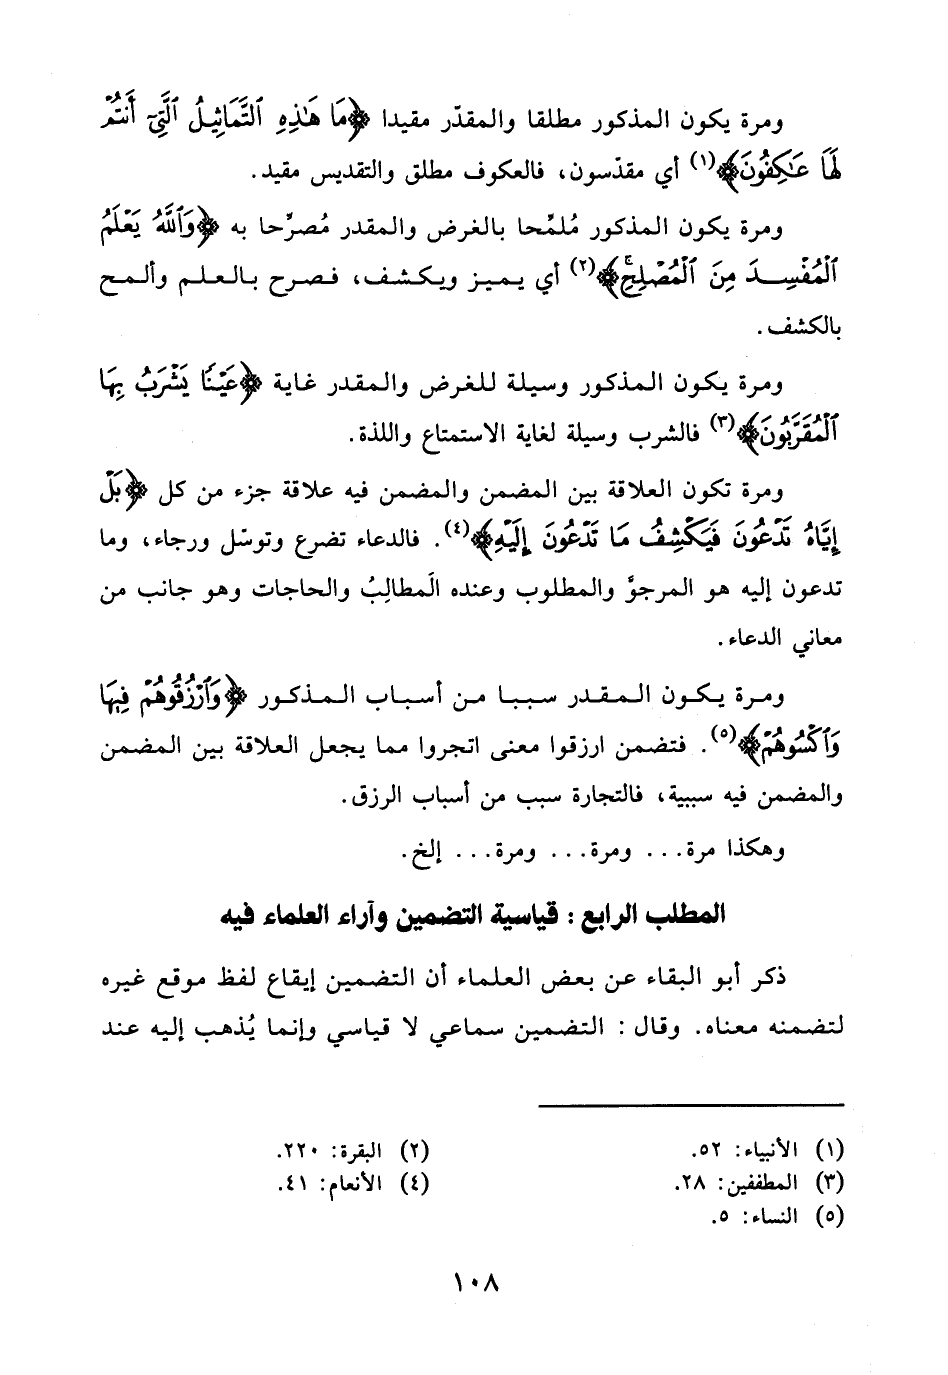 ومرة يكون المذكور مطلقا والمقدّر مقيدا ﴿مَا هَٰذِهِ ٱلتَّمَاثِيلُ ٱلَّتِيٓ أَنتُمْ
لَهَا عَٰكِفُونَ﴾(١) أي مقدّسون، فالعكوف مطلق والتقديس مقيد.
ومرة يكون المذكور مُلمِّحا بالغرض والمقدر مُصرِّحا به ﴿وَٱللَّهُ يَعْلَمُ
ٱلْمُفْسِدَ مِنَ ٱلْمُصْلِحِۚ﴾(٢) أي يميز ويكشف، فصرح بالعلم وألمح
بالكشف.
ومرة يكون المذكور وسيلة للغرض والمقدر غاية ﴿عَيْنًا يَشْرَبُ بِهَا
ٱلْمُقَرَّبُونَ﴾(٣) فالشرب وسيلة لغاية الاستمتاع واللذة.
ومرة تكون العلاقة بين المضمن والمضمن فيه علاقة جزء من كل ﴿بَلْ
إِيَّاهُ تَدْعُونَ فَيَكْشِفُ مَا تَدْعُونَ إِلَيْهِ﴾(٤). فالدعاء تضرع وتوسّل ورجاء، وما
تدعون إليه هو المرجوَّ والمطلوب وعنده اَلمطالِبُ والحاجات وهو جانب من
معاني الدعاء.
ومرة يكون المقدر سببا من أسباب المذكور ﴿وَٱرْزُقُوهُمْ فِيهَا
وَٱكْسُوهُمْ﴾(٥). فتضمن ارزقوا معنى اتجروا مما يجعل العلاقة بين المضمن
والمضمن فيه سببية، فالتجارة سبب من أسباب الرزق.
وهكذا مرة... ومرة... ومرة... إلخ.
المطلب الرابع : قياسية التضمين وآراء العلماء فيه
ذكر أبو البقاء عن بعض العلماء أن التضمين إيقاع لفظ موقع غيره
لتضمنه معناه. وقال : التضمين سماعي لا قياسي وإنما يُذهب إليه عند
(١) الأنبياء: ٥٢.
(٢) البقرة: ٢٢٠.
(٣) المطففين: ٢٨.
(٤) الأنعام: ٤١.
(٥) النساء: ٥.
١٠٨